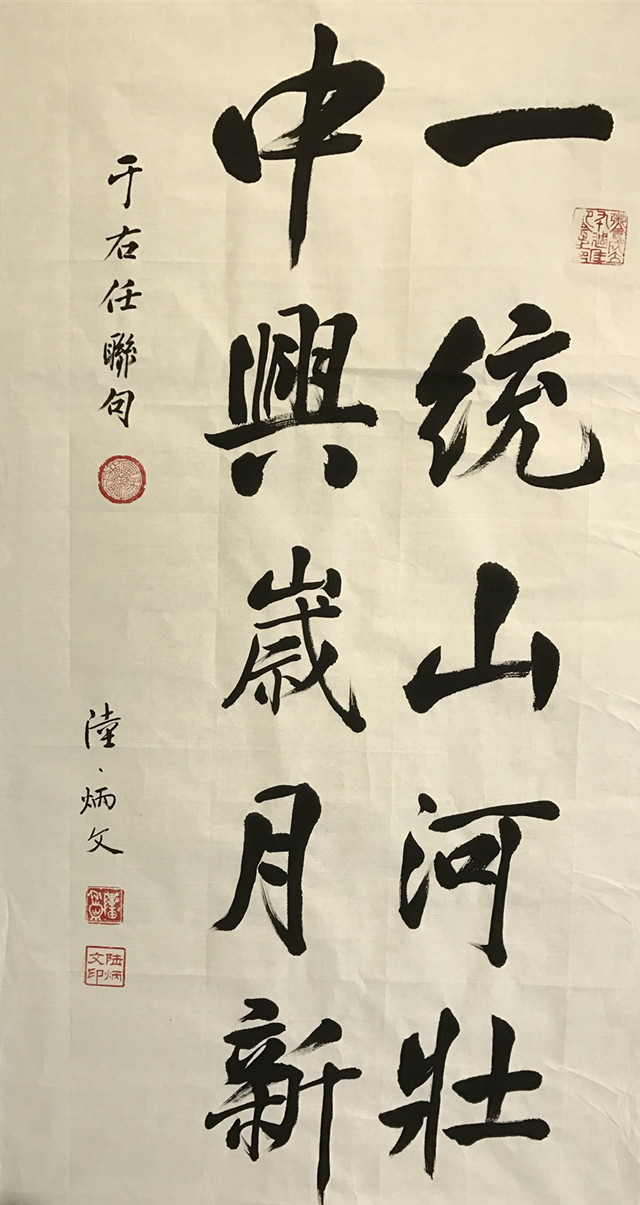 一统山河壮
中興歲月新
于右任聯句
陸炳文
陆炳文印